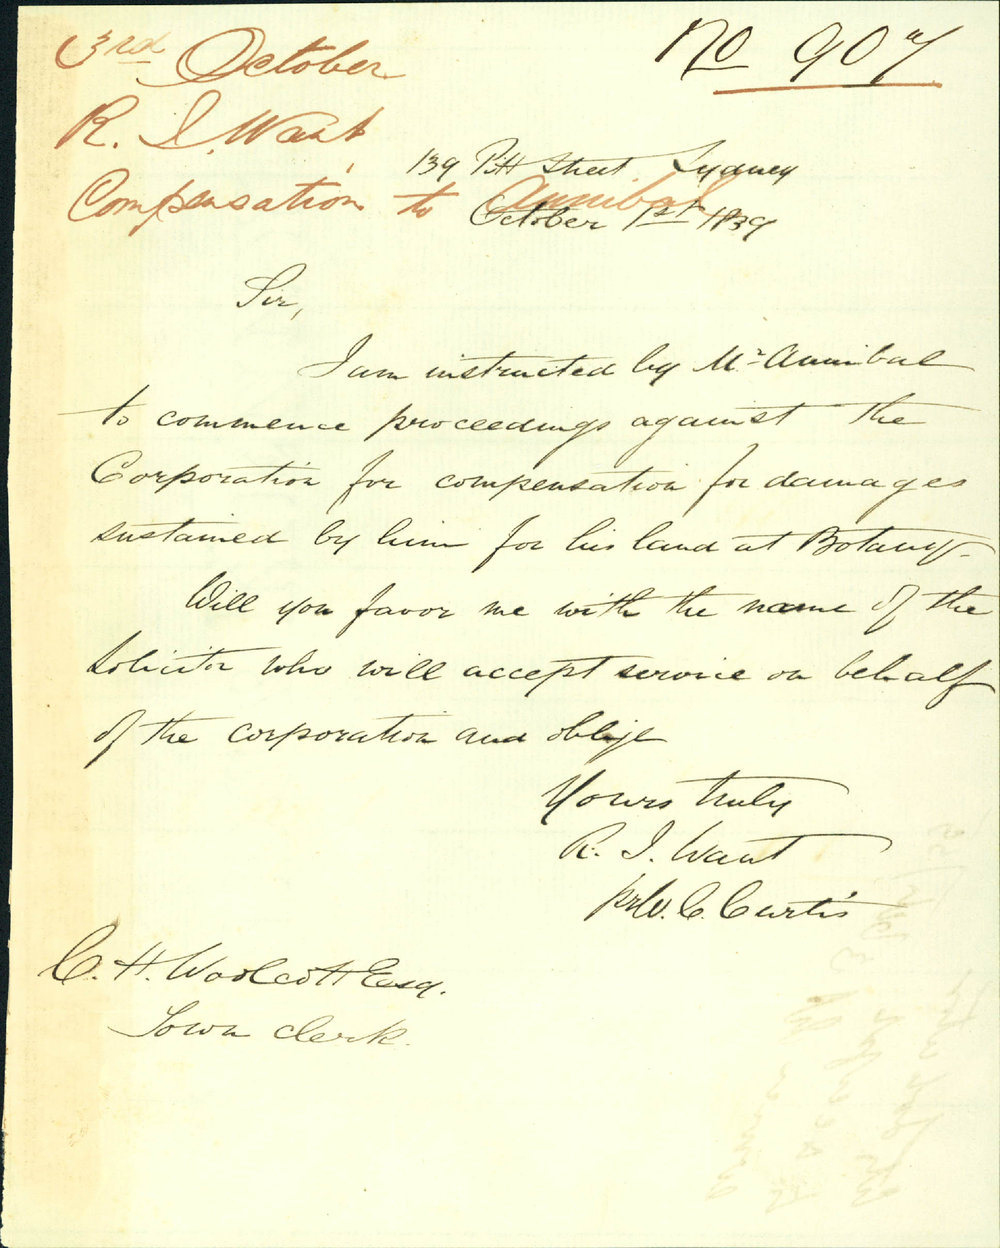 3rd October
No 907
R. J. Want
Compensation to Annibal
139 Pitt Street Sydney
October 1st 1839
Sir,
I am instructed by Mr Annibal
to commence proceedings against the
Corporation for compensation for damages
sustained by him for his land at Botany.
Will you favor me with the name of the
Solicitor who will accept service on behalf
of the corporation and oblige
Yours truly
R. J. Want
pr W. C. Curtis
C. H. Woolcott Esq.
Town Clerk.